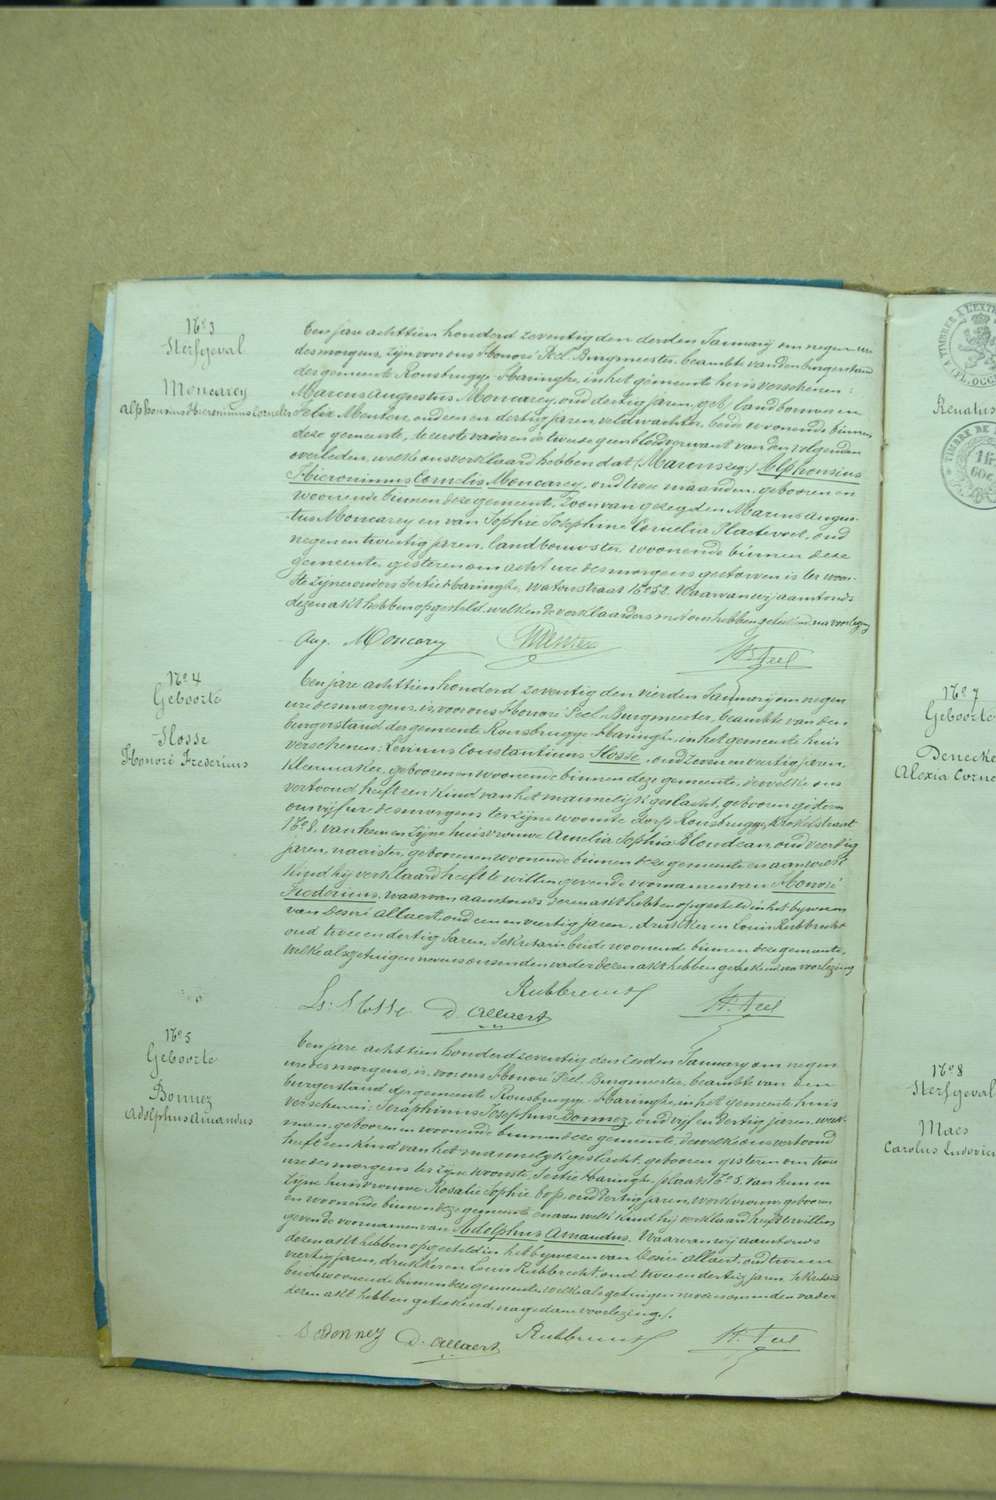 N° 3
Sterfgeval
Moncarey
Alphonsius Hieronimus Cornelis
Een jare achttien honderd zeventig den derden January om negen ure
des morgens, zijn voor ons Honoré Peel, Burgmeester, beambte van den burgerstand
der gemeente Rousbrugge-Haringhe, in het gemeente huis verschenen:
Marcus Augustus Moncarey, oud dertig jaren, landbouwer en
Felix Menton, oud een en dertig jaren, veldwachter, beide woonende binnen
deze gemeente, te eerste vader en de tweede geen bloedverwant van den volgenden
overleden, welke ons verklaard hebben dat Alphonsius
Hieronimus Cornelis Moncarey, oud twee maanden, gebooren en
woonende binnen deze gemeente, zoon van gezegden Marcus Augus-
tus Moncarey en van Sophie Josephine Cornelia Plaetevoet, oud
negen en twintig jaren, landbouwster, woonende binnen deze
gemeente, gisteren om acht ure des morgens gestorven is ter woon-
ste zijner ouders sectie Haringhe, Waterstraat N° 52. Waarvan wij aanstonds
dezen akt hebben opgesteld, welken de verklaarders met ons hebben geteekend na voorlezing
Aug. Moncarey
H. Peel
N° 4
Geboorte
Flosse
Honoré Fredericus
Een jare achttien honderd zeventig den vierden January om negen
ure des morgens, is, voor ons Honoré Peel, Burgmeester, beambte van den
burgerstand der gemeente Rousbrugge-Haringhe, in het gemeente huis
verschenen: Livinus Constantinus Flosse, oud zeven en veertig jaren,
kleermaker, gebooren en woonende binnen deze gemeente, dewelke ons
vertoond heeft een kind van het mannelijk geslacht, gebooren gisteren
om vijf ure des morgens ter zijne woonste Dorp Rousbrugge,
N° 8, van hem en zijne huisvrouwe Amelia Sophia Blondeau, oud veertig
jaren, naaister, gebooren en woonende binnen deze gemeente en aan welk
kind hij verklaard heeft te willen geven de voornamen van Honoré
Fredericus, waarvan aanstonds dezen akt hebben opgesteld in het bywezen
van Desiré Allaert, oud een en veertig jaren, drukker en Louis Rubbrecht
oud twee en dertig Jaren, Sekretaris beide woonende binnen deze gemeente,
welke als getuigen nevens ons en den vader dezen akt hebben geteekend na voorlezing
Rubbrecht
D. Allaert
H. Peel
N° 5
Geboorte
Bonnez
Adolphus Amandus
Een jare achttien honderd zeventig den zesden January om negen
ure des morgens, is, voor ons Honoré Peel, Burgmeester, beambte van den
burgerstand der gemeente Rousbrugge-Haringhe, in het gemeente huis
verschenen: Seraphinus Josephus Bonnez, oud vyf en dertig jaren, werk-
man, gebooren en woonende binnen deze gemeente, dewelke ons vertoond
heeft een kind van het mannelijk geslacht, gebooren gisteren om twee
ure des morgens ter zijne woonste, sectie Haringhe, plaats N° 5, van hem en
zijne huisvrouwe Rosalie Sophie Top, oud dertig jaren, werkvrouw, gebooren
en woonende binnen deze gemeente en aan welk kind hij verklaard heeft te willen
geven de voornamen van Adolphus Amandus. Waarvan wij aanstonds
dezen akt hebben opgesteld in het bijwezen van Desiré Allaert, oud een en
veertig jaren, drukker en Louis Rubbrecht, oud twee en dertig jaren, Sekretaris
beide woonende binnen deze gemeente, welke als getuigen nevens ons en den vader
dezen akt hebben geteekend, na gedane voorlezing.
S. Bonney
D. Allaert
Rubbrecht
H. Peel
TIMBRE A L'EXTR
Renatus
TIMBRE DE
N° 7
Geboorte
Denecke
Alexia Corne
N° 8
Sterfgeval
Maes
Carolus Ludovicus